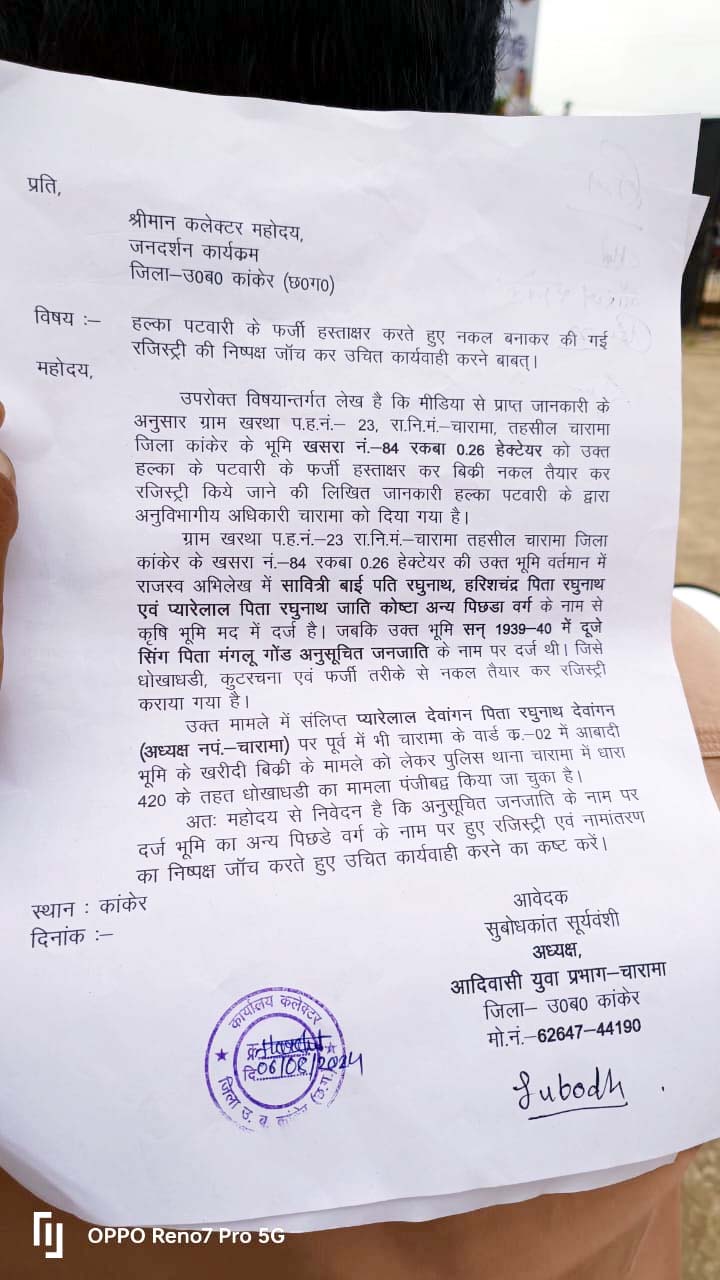 प्रति,
श्रीमान कलेक्टर महोदय,
जनदर्शन कार्यकम
जिला–उ0ब0 कांकेर (छ0ग0)
विषय :– हल्का पटवारी के फर्जी हस्ताक्षर करते हुए नकल बनाकर की गई
रजिस्ट्री की निष्पक्ष जॉच कर उचित कार्यवाही करने बाबत्।
महोदय,
उपरोक्त विषयान्तर्गत लेख है कि मीडिया से प्राप्त जानकारी के
अनुसार ग्राम खरथा प.ह.नं.– 23, रा.नि.मं.–चारामा, तहसील चारामा
जिला कांकेर के भूमि खसरा नं.–84 रकबा 0.26 हेक्टेयर को उक्त
हल्का के पटवारी के फर्जी हस्ताक्षर कर बिकी नकल तैयार कर
रजिस्ट्री किये जाने की लिखित जानकारी हल्का पटवारी के द्वारा
अनुविभागीय अधिकारी चारामा को दिया गया है।
ग्राम खरथा प.ह.नं.–23 रा.नि.मं.–चारामा तहसील चारामा जिला
कांकेर के खसरा नं.–84 रकबा 0.26 हेक्टेयर की उक्त भूमि वर्तमान में
राजस्व अभिलेख में सावित्री बाई पति रघुनाथ, हरिशचंद्र पिता रघुनाथ
एवं प्यारेलाल पिता रघुनाथ जाति कोष्टा अन्य पिछडा वर्ग के नाम से
कृषि भूमि मद में दर्ज है। जबकि उक्त भूमि सन् 1939–40 में दूजे
सिंग पिता मंगलू गोंड अनुसूचित जनजाति के नाम पर दर्ज थी। जिसे
धोखाधडी, कुटरचना एवं फर्जी तरीके से नकल तैयार कर रजिस्ट्री
कराया गया है।
उक्त मामले में संलिप्त प्यारेलाल देवांगन पिता रघुनाथ देवांगन
(अध्यक्ष नपं.–चारामा) पर पूर्व में भी चारामा के वार्ड क.–02 में आबादी
भूमि के खरीदी बिकी के मामले को लेकर पुलिस थाना चारामा में धारा
420 के तहत धोखाधडी का मामला पंजीबद्व किया जा चुका है।
अतः महोदय से निवेदन है कि अनुसूचित जनजाति के नाम पर
दर्ज भूमि का अन्य पिछडे वर्ग के नाम पर हुए रजिस्ट्री एवं नामांतरण
का निष्पक्ष जॉच करते हुए उचित कार्यवाही करने का कष्ट करें।
स्थान : कांकेर
दिनांक :–
आवेदक
सुबोधकांत सूर्यवंशी
अध्यक्ष,
आदिवासी युवा प्रभाग–चारामा
जिला– उ0ब0 कांकेर
मो.नं.–62647–44190
Subodh
कार्यालय कलेक्टर
क्र.
दि. 06/08/2024
जिला उ. ब. कांकेर (छ.ग.)
OPPO Reno7 Pro 5G